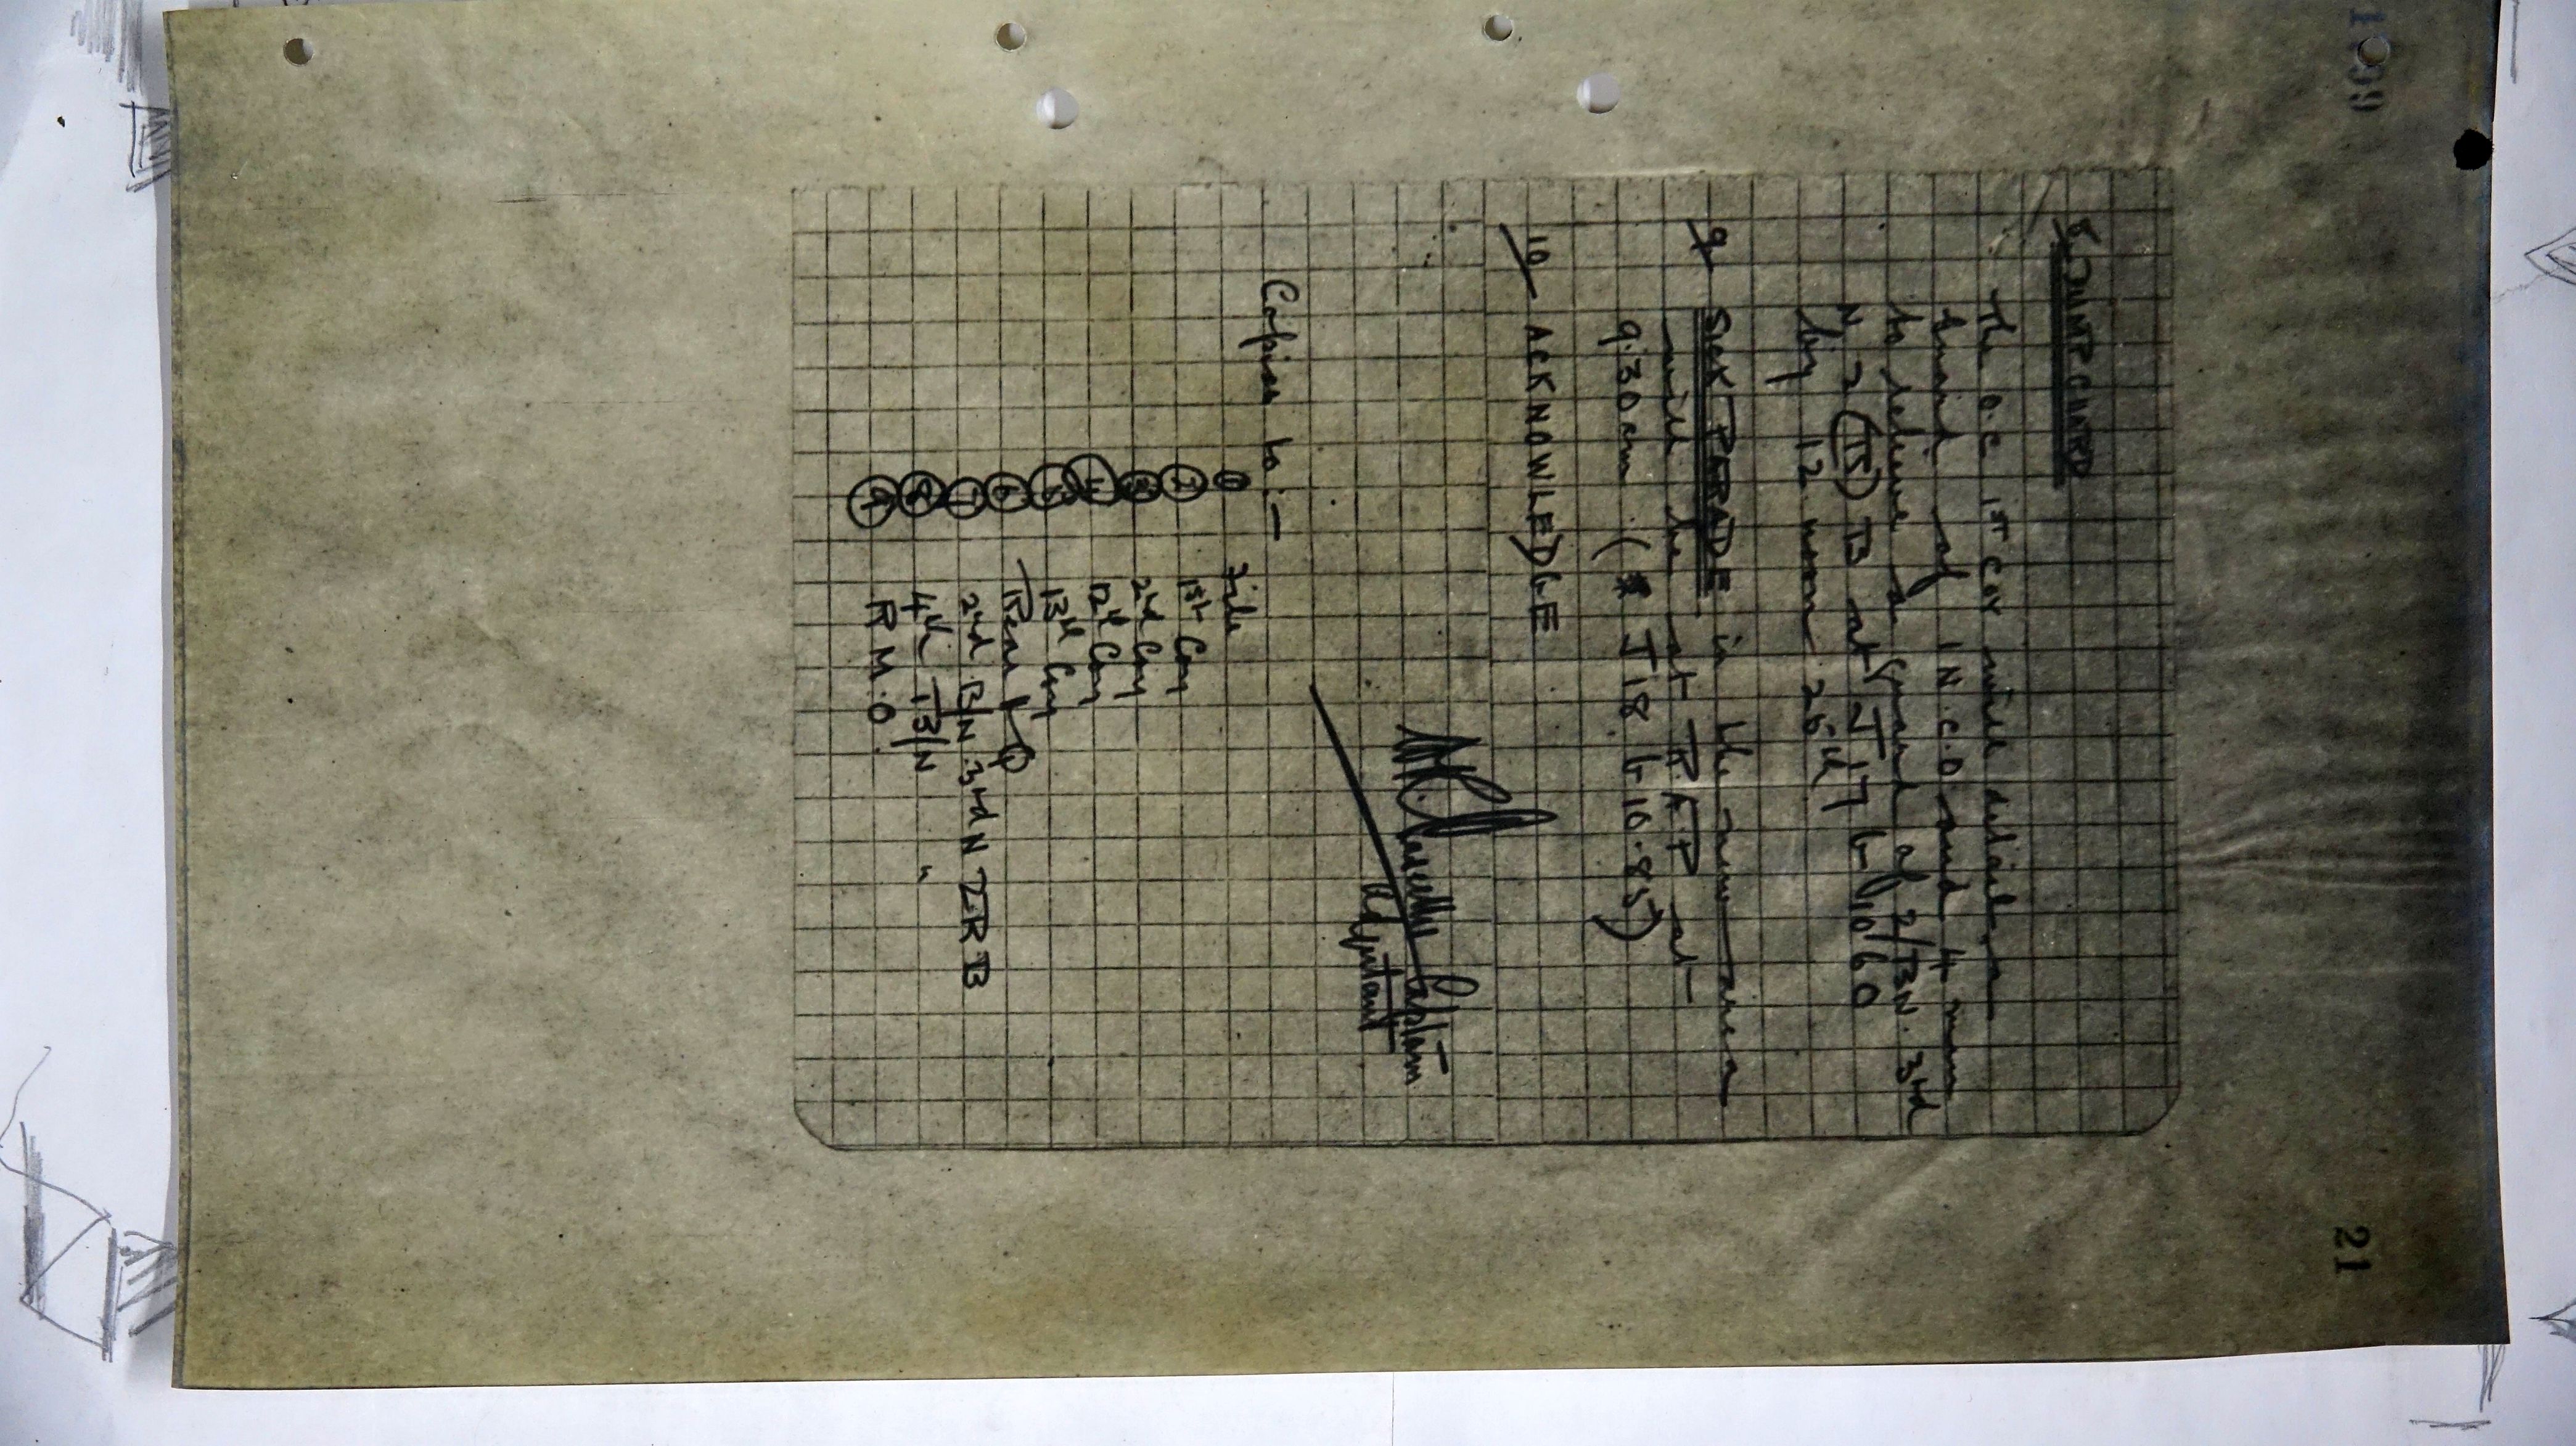 1099
21
8 DUMP GUARD
The O.C 1ST COY will detail a
Guard of 1 N.C.O and 4 men
to relieve a Guard of 2/BN. 3rd
N Z (IS) B at J 17 b 10 60
by 12 noon 26th
9 SICK PARADE in the new area
will be at R.A.P at
9.30am ( J 18 b 10.85)
10 ACKNOWLEDGE
Captain
Adjutant
Copies to :-
1 File
2 1st Coy
3 2nd Coy
4 12th Coy
5 13th Coy
6 Rear HQ
7 2nd BN 3rd N Z R B
8 4th BN "
9 R M.O.